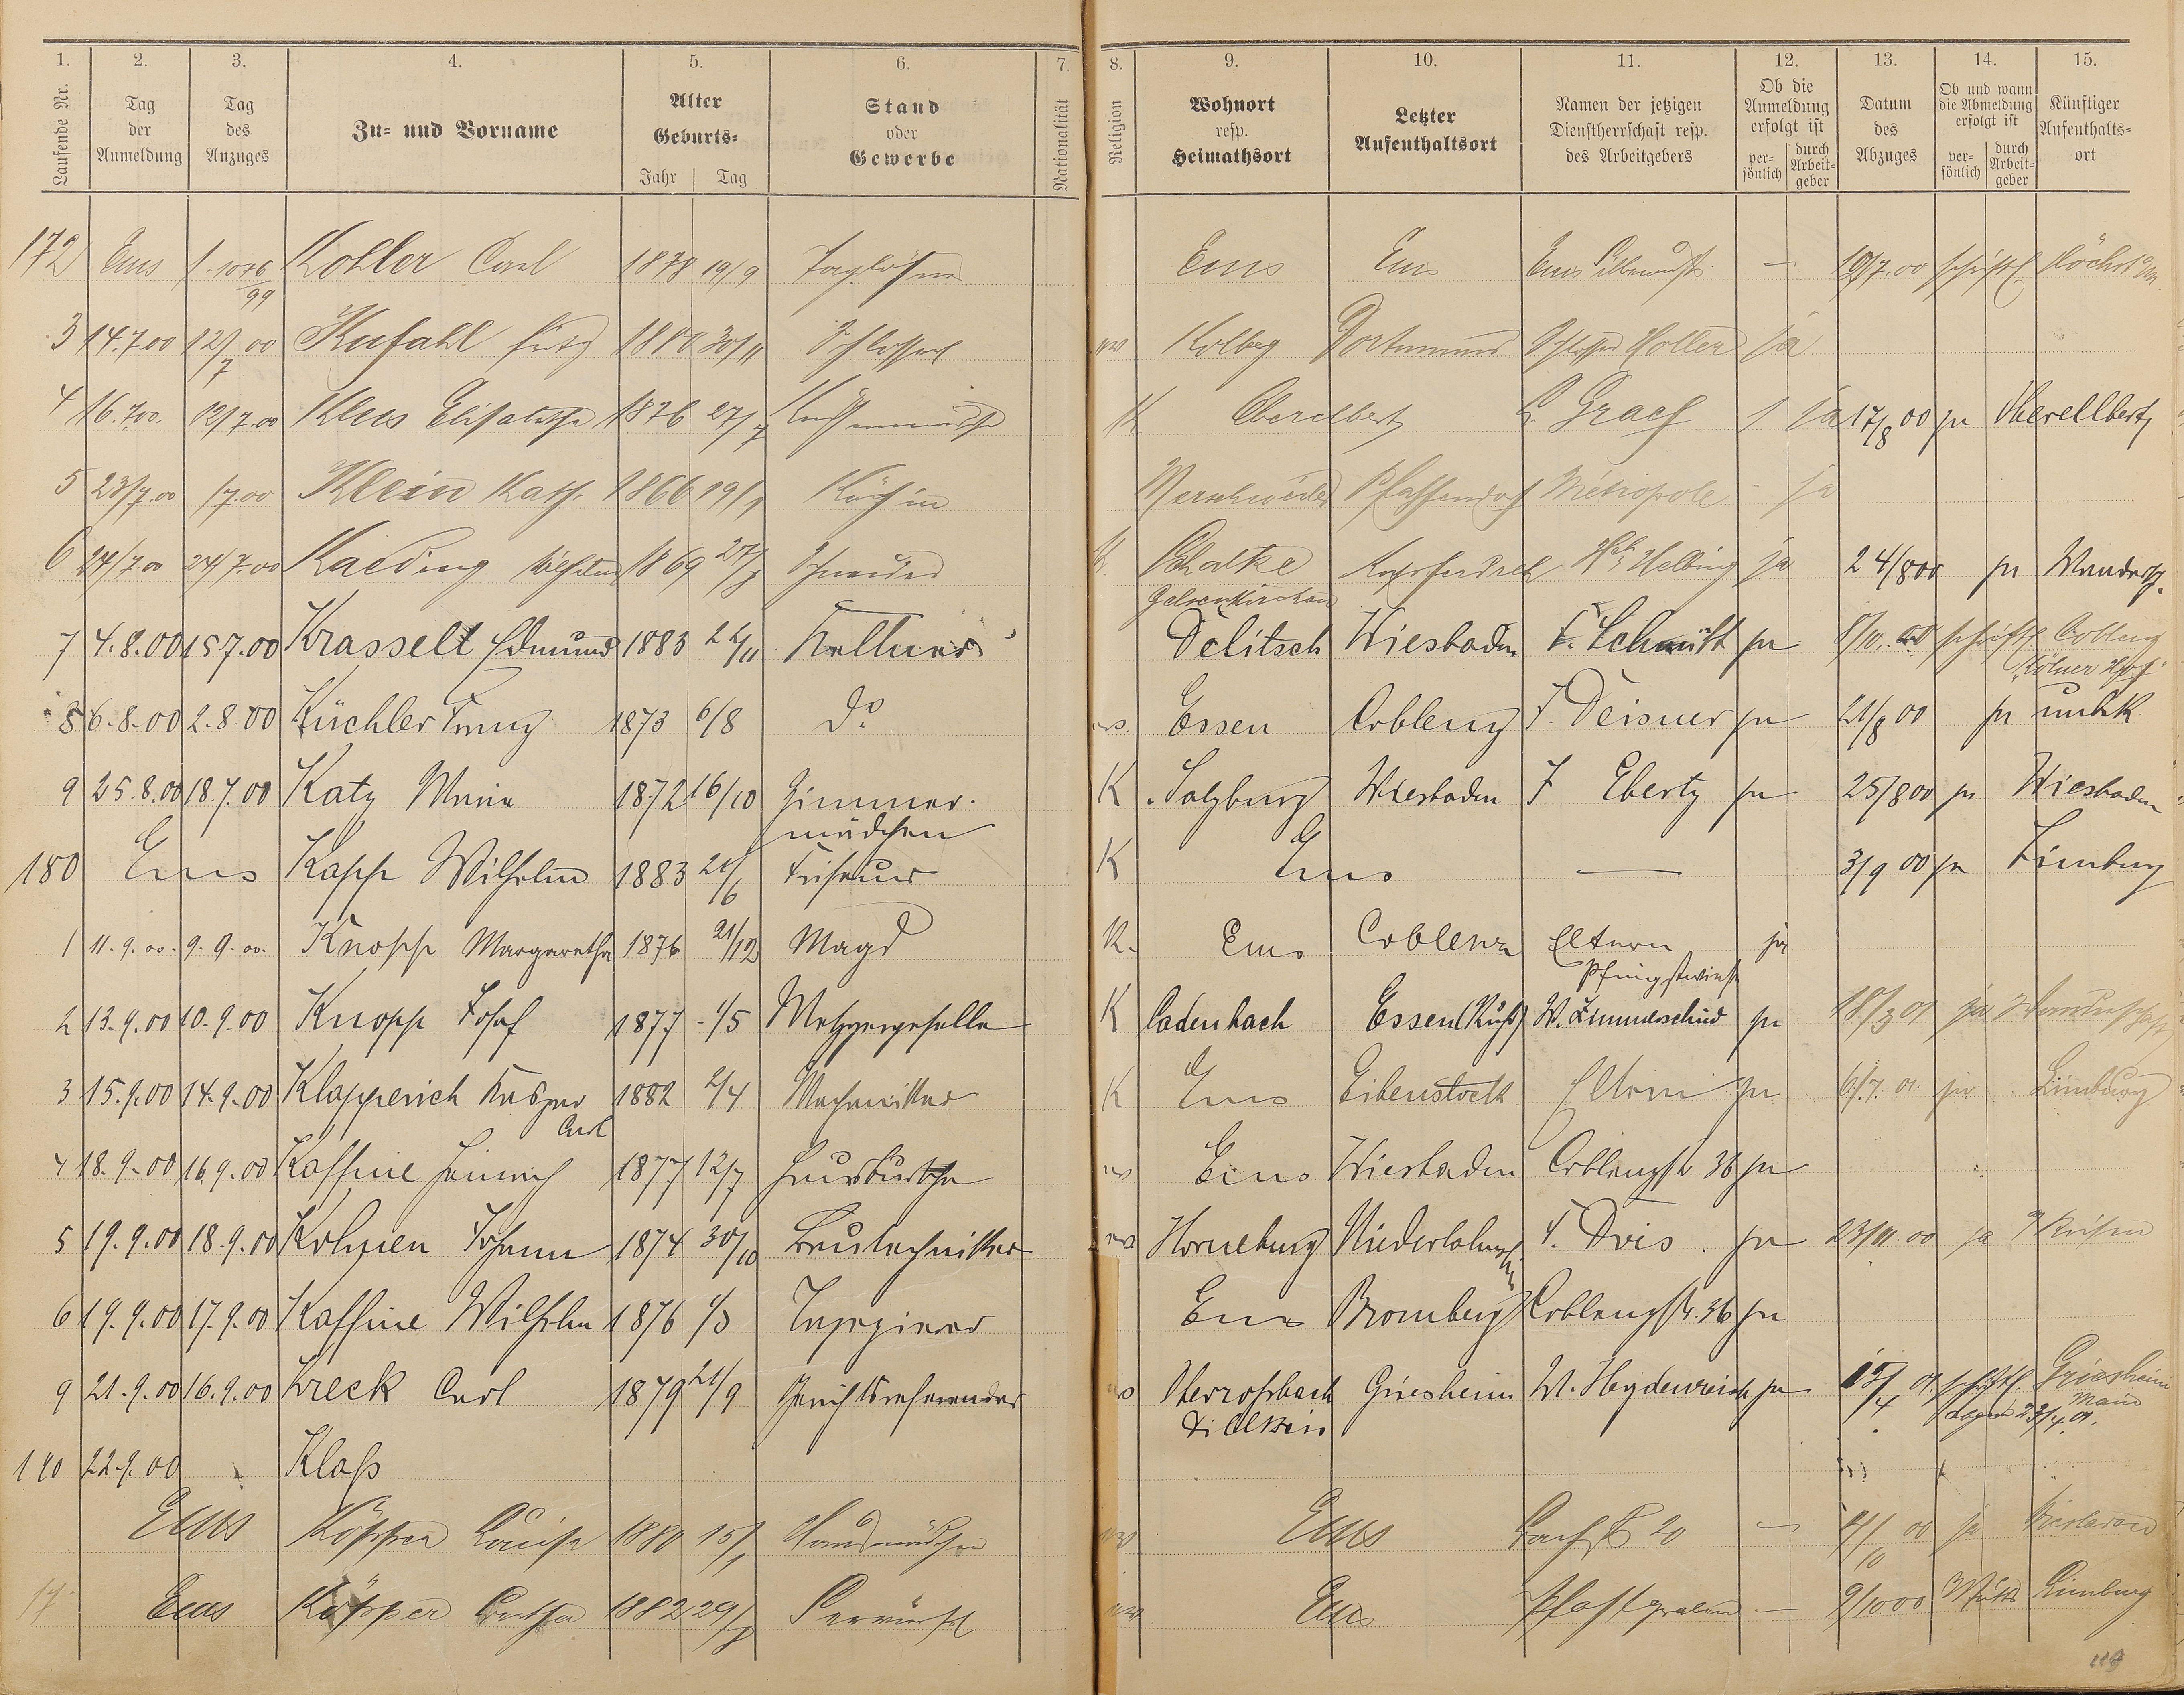 1. 2. 3. 4. 5. 6. 7. 8. 9. 10. 11. 12. 13. 14. 15.
Laufende Nr. Tag der Anmeldung Tag des Anzuges Zu- und Vorname Alter Geburts- Jahr Tag Stand oder Gewerbe Nationalität Religion Wohnort resp. Heimathsort Letzter Aufenthaltsort Namen der jetzigen Dienstherrschaft resp. des Arbeitgebers Ob die Anmeldung erfolgt ist persönlich durch Arbeitgeber Datum des Abzuges Ob und wann die Abmeldung erfolgt ist persönlich durch Arbeitgeber Künftiger Aufenthaltsort
172 Ems Kohler Carl 1878 19/9 Taglöhner Ems Ems Ems — 10/7.00 schriftl Höchst
3 14.7.00 12/7 00 Kufahl 1880 30/11 Schlosser Kolberg Dortmund Schlosser Holler ja
4 16.7.00. 12/7.00 Klees Elisabetha 1876 27/7 K Oberelbert L. Graef ja 17/8 00 ja Oberellbert
5 23/7.00 /7.00 Klein Kath. 1866 19/1 Köchin Pfaffendorf Métropole ja
6 24/7.00 24/7.00 Kaeding Wilhelm 1869 27/7 Schneider K Schalke Gelsenkirchen Helbing ja 24/8 00 ja Wandersch.
7 4.8.00 15.7.00 Krasselt Edmund 1883 22/11 Kellner Delitsch Wiesbaden F. Schmitt ja 8/10.00 schriftl Coblenz "Kölner Hof"
8 6.8.00 2.8.00 Küchler Franz 1873 6/8 do Essen Coblenz F. Deisner ja 21/8 00 ja unbek.
9 25.8.00 18.7.00 Katz Maria 1872 16/10 Zimmermädchen K Salzburg Wiesbaden F Ebertz ja 25/8 00 ja Wiesbaden
180 Ems Kapp Wilhelm 1883 21/6 Friseur K Ems — 3/9 00 ja Limburg
1 11.9.00. 9.9.00. Knopp Margaretha 1876 21/12 Magd K. Ems Coblenz Eltern Pfingstwiese ja
2 13.9.00 10.9.00 Knopp Josef 1877 1/5 Metzgergeselle K Cadenbach Essen (Ruhr) W. Zimmerschied ja 18/3 01 ja Wanderschaft
3 15.9.00 14.9.00 Klapperich Kaspar Carl 1882 2/4 Mechaniker K Ems Eibenstock Eltern ja 6/7.01. ja Limburg
4 18.9.00 16.9.00 Kaffine Heinrich 1877 12/7 Hausbursche Ems Wiesbaden Coblenzstr. 36 ja
5 19.9.00 18.9.00 Johann 1874 30/10 Bautechniker Horneburg Niederlahnstein F. Dois ja 23/11.00 ja Reisen
6 19.9.00 17.9.00 Kaffine Wilhelm 1876 1/3 Tapezierer Ems Bromberg Coblenzstr. 36 ja
9 21.9.00 16.9.00 Kreck Carl 1879 21/9 Gerichtsreferendar Oberrossbach Griesheim W. Heydenreich ja 15/4 01 schriftl. Griesheim Main
23/4.01.
190 22.9.00 Klaß
Ems Köpper Louise 1880 15/1 Hausmädchen Ems Bachstr 20 — 00 ja
17 Ems Köpper Bertha 1882 29/8 Ems Pfahlgraben — 9/10 00 Limburg
118